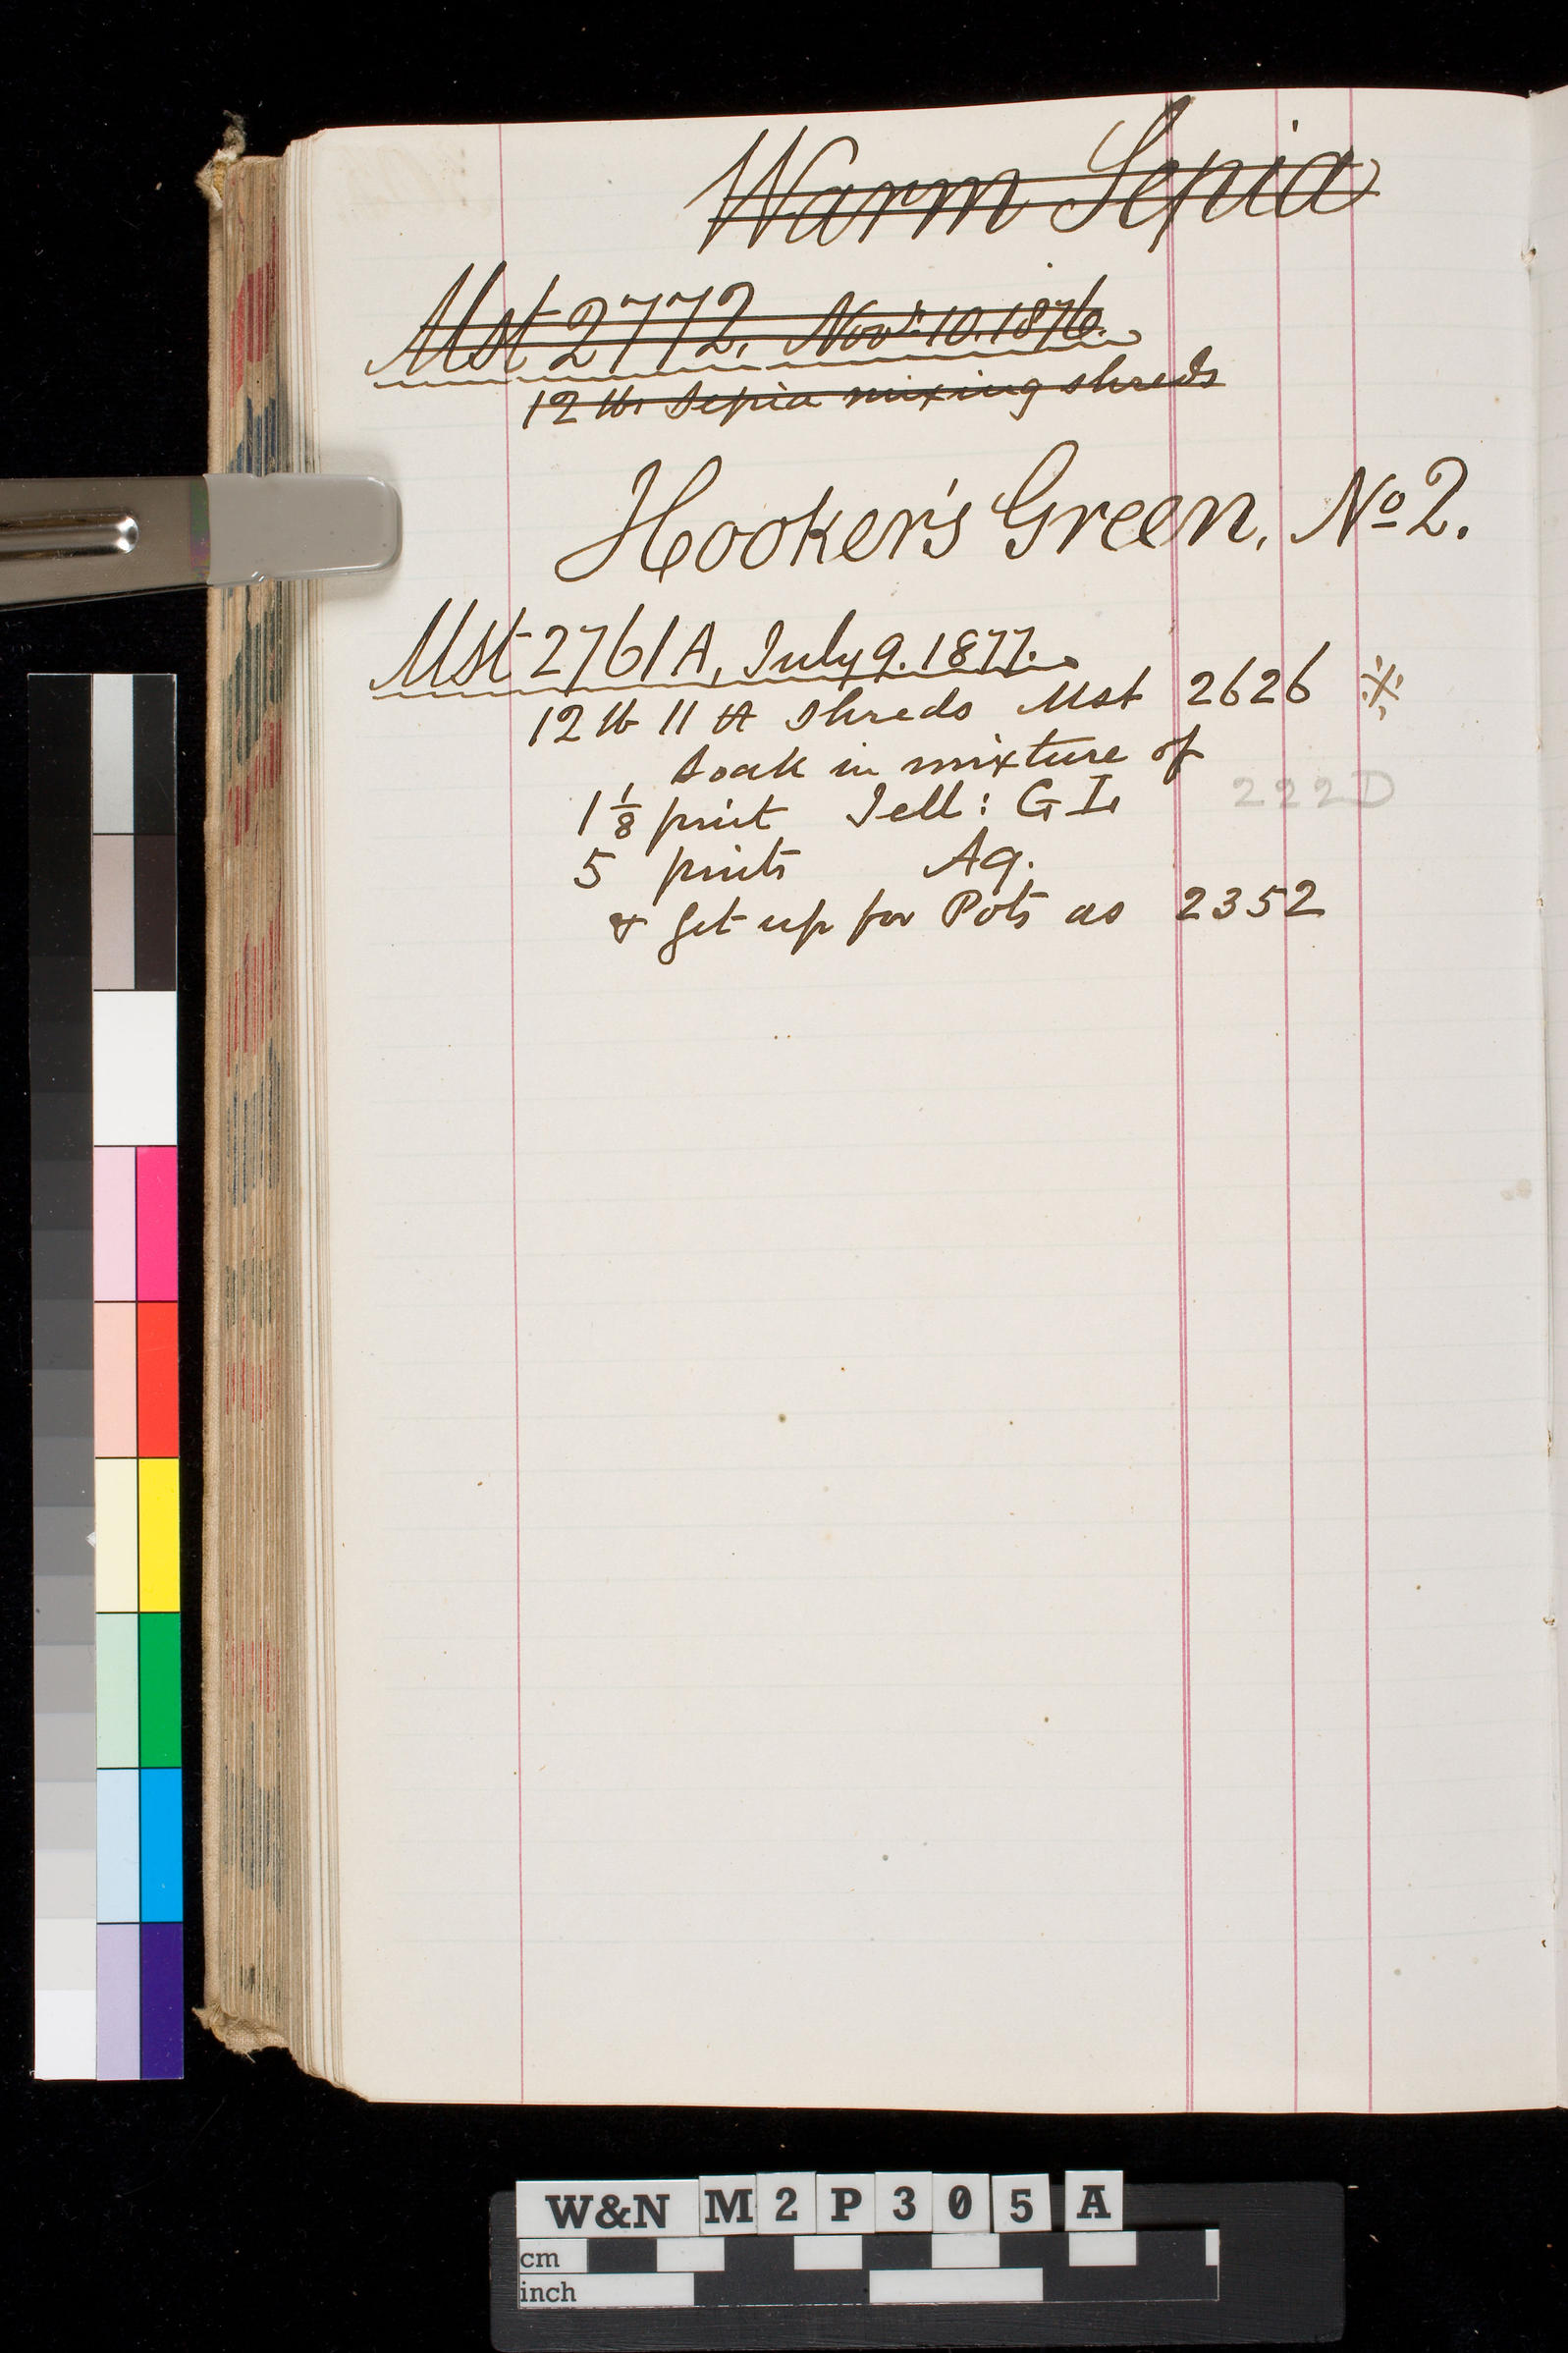 Warm Sepia
Mst 2772, Novr 10. 1876.
12 lb Sepia mixing shreds
Hooker's Green, No 2.
Mst 2761A, July 9. 1877.
12 lb 11 shreds Mst 2626 ※
soak in mixture of
1 1/8 pint Jell: G I. 222D
5 pints Aq.
& get up for Pots as 2352
W&N M2P305A
cm
inch